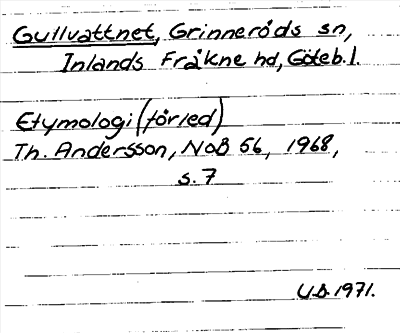 Gullvattnet, Grinneröds sn,
Inlands Fräkne hd, Göteb.l.
Etymologi (förled)
Th. Andersson, NoB 56, 1968,
s. 7
U.B. 1971.